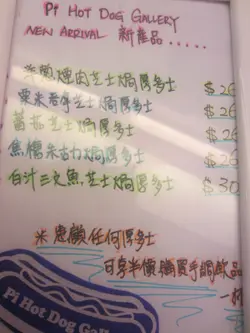 Pi HOT DOG GALLERY
NEW ARRIVAL 新產品.....
芝士焗厚多士 $26
粟米吞拿芝士焗厚多士 $26
蕃茄芝士焗厚多士 $26
焦糖朱古力焗厚多士 $26
白汁三文魚芝士焗厚多士 $30
※惠顧任何厚多士
可享半價購買手調飲品
Pi Hot Dog Galle